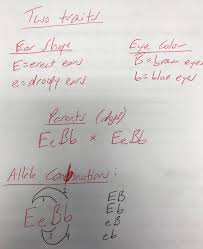 Two traits
Ear Shape
E=erect ears
e=droopy ears
Eye Color
B=brown eyes
b=blue eyes
Parents (dogs)
EeBb x EeBb
Allele Combinations:
EeBb
EB
Eb
eB
eb